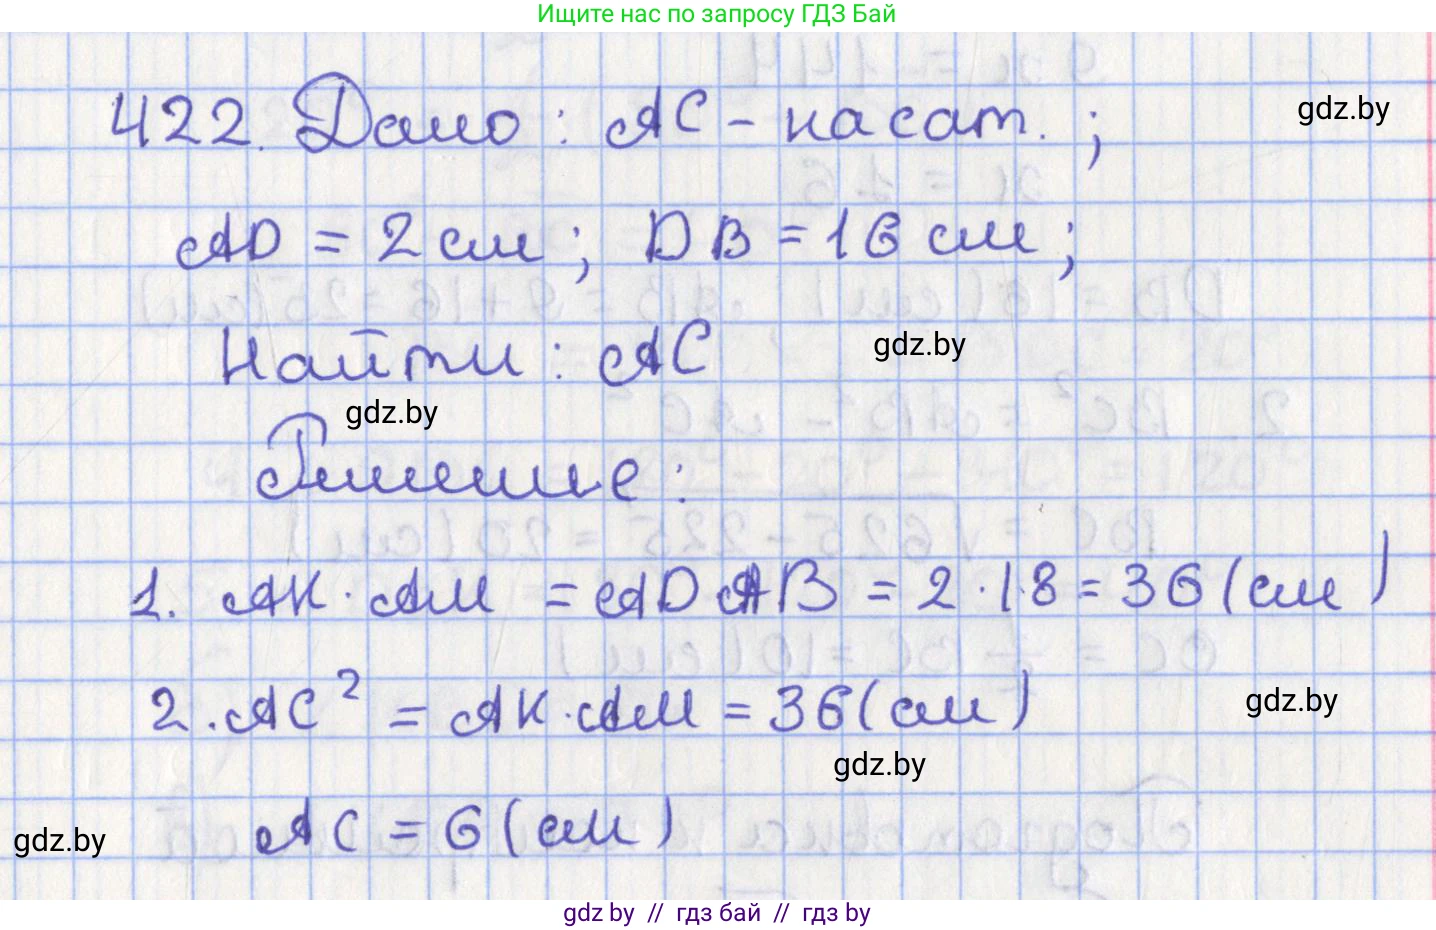 Ищите нас по запросу ГДЗ Бай
422. Дано: AC - касат.;
gdz.by
AD = 2 см; DB = 16 см;
Найти: AC
gdz.by
gdz.by
Решение:
1. AK · AM = AD · AB = 2 · 18 = 36 (см)
2. AC² = AK · AM = 36 (см)
gdz.by
gdz.by
AC = 6 (см)
gdz.by
gdz by // гдз бай // гдз by